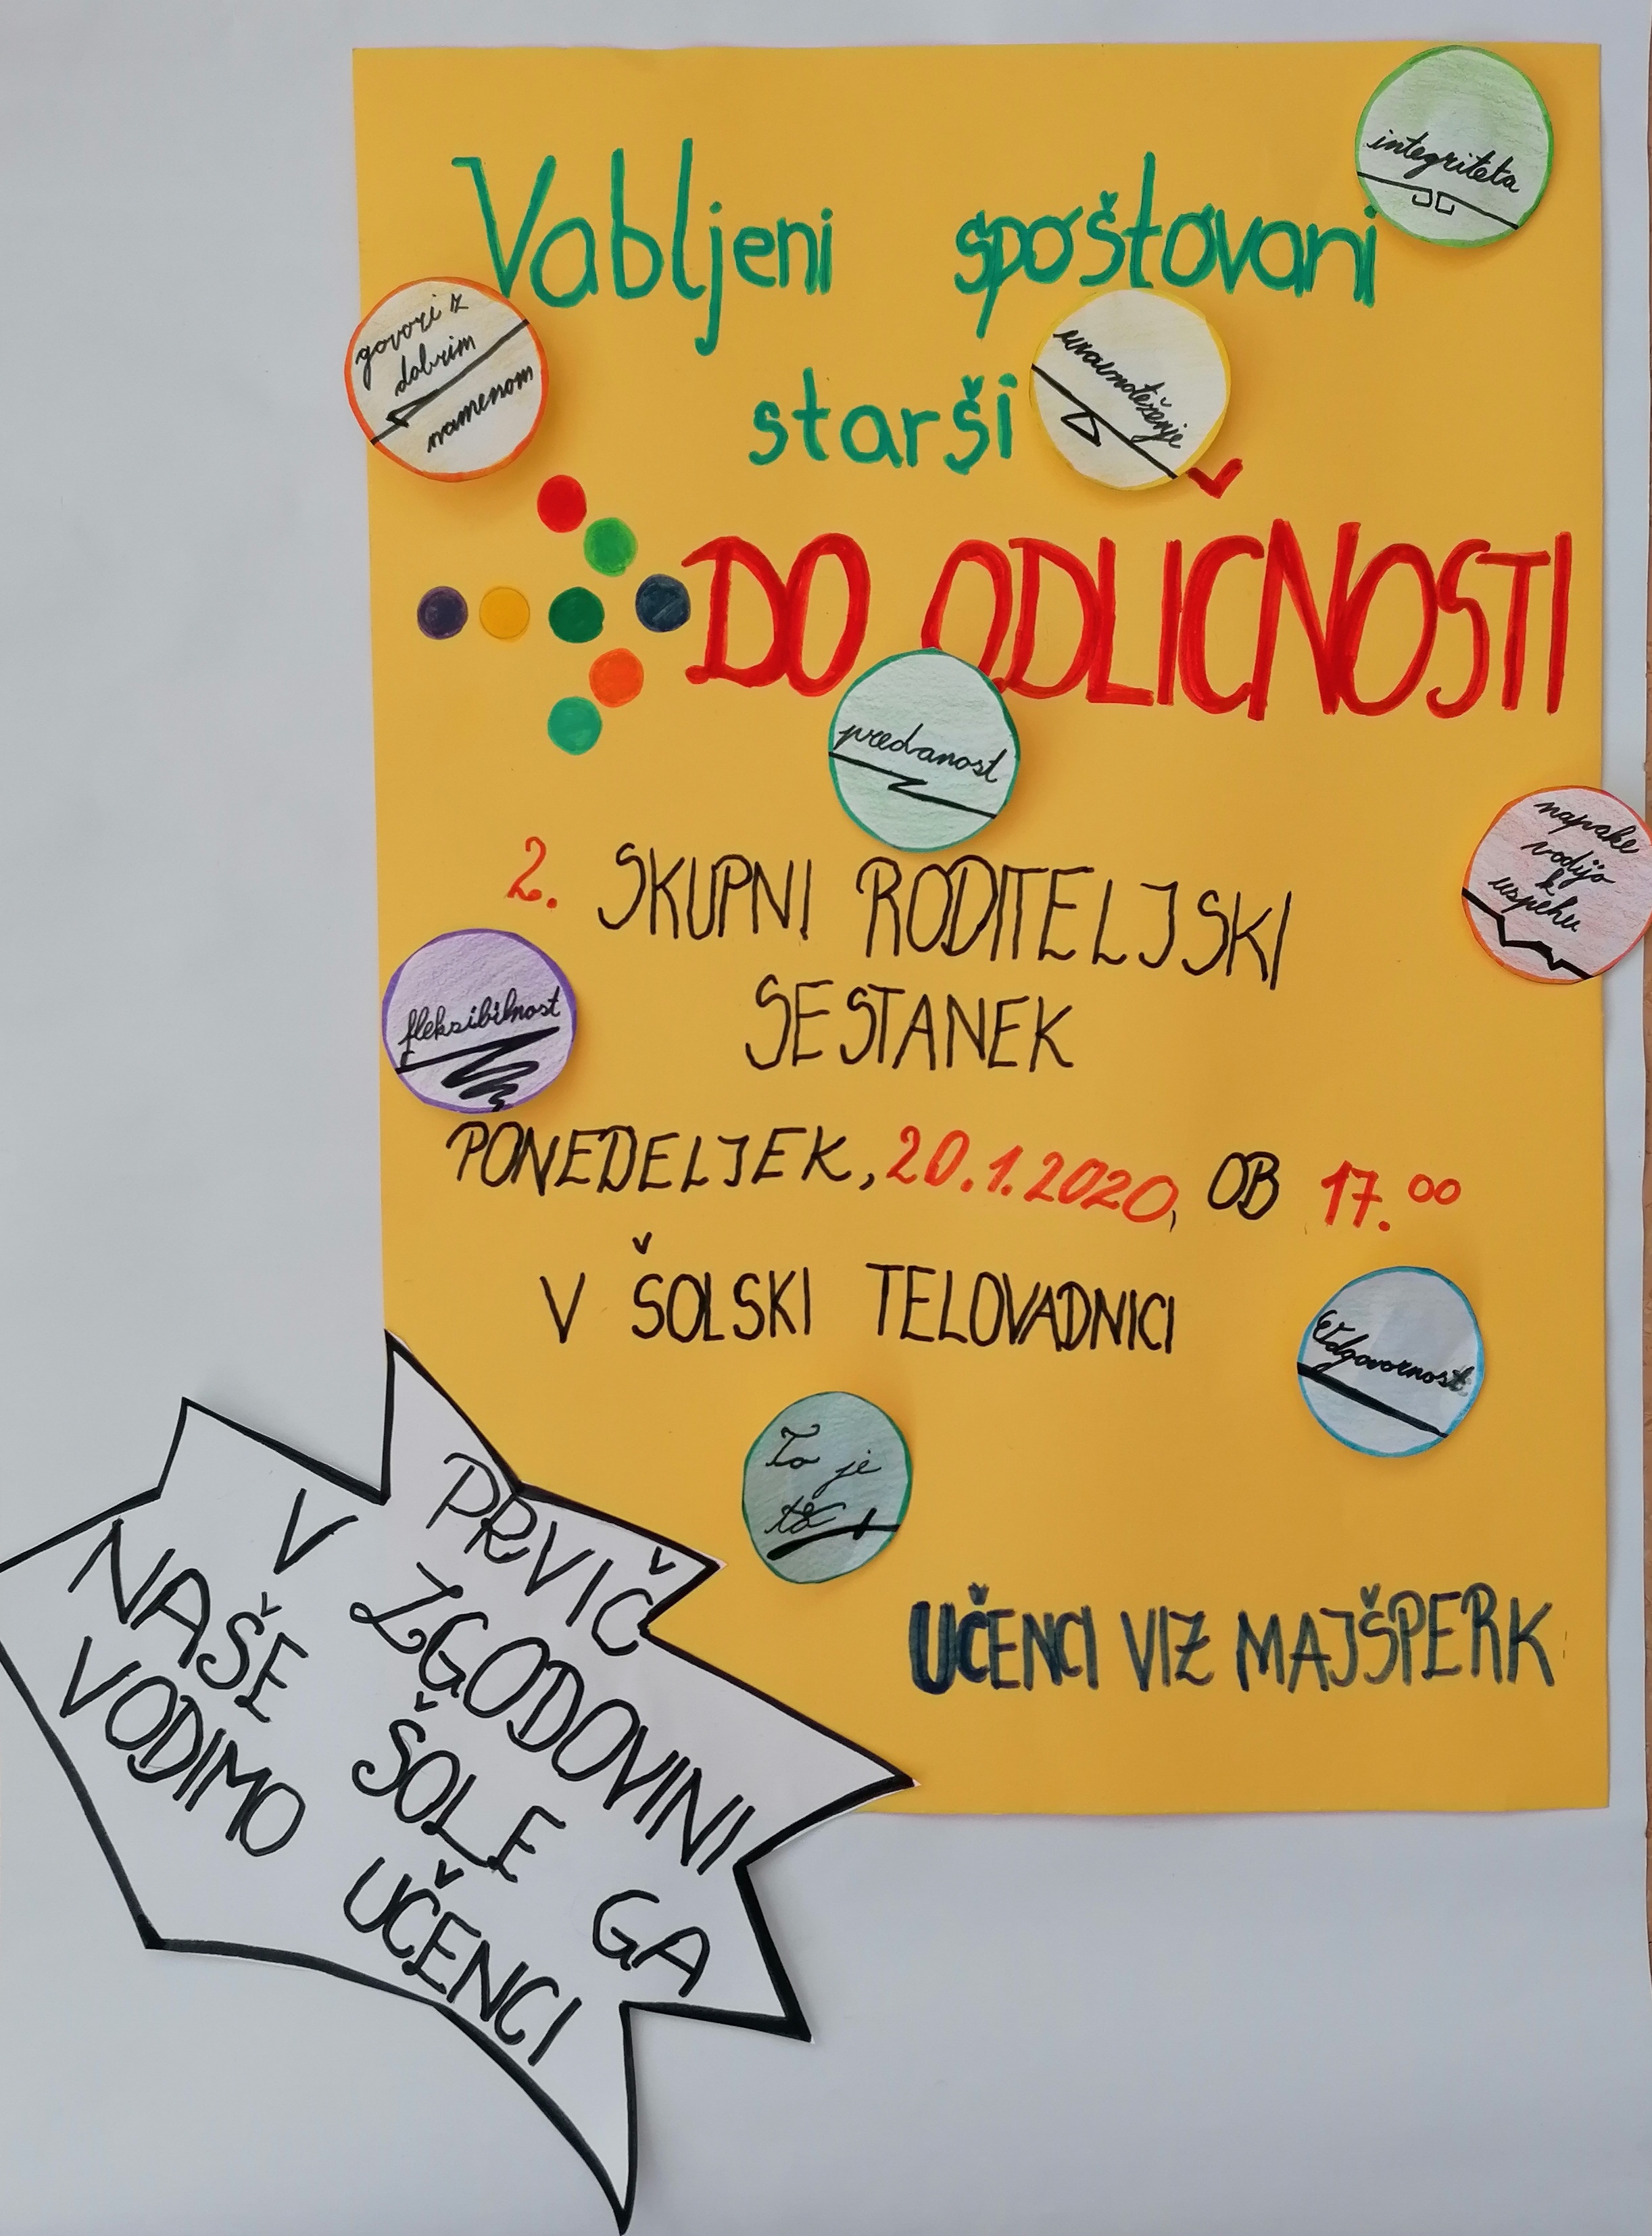 integriteta
Vabljeni spoštovani
govori z
dobrim
namenom
uravnoteženje
starši
DO ODLIČNOSTI
predanost
napake
vodijo
k
uspehu
2. SKUPNI RODITELJSKI
SESTANEK
fleksibilnost
PONEDELJEK, 20.1.2020, OB 17.00
V ŠOLSKI TELOVADNICI
Odgovornost
To je
to
UČENCI VIZ MAJŠPERK
PRVIČ
V ZGODOVINI
NAŠE ŠOLE GA
VODIMO UČENCI